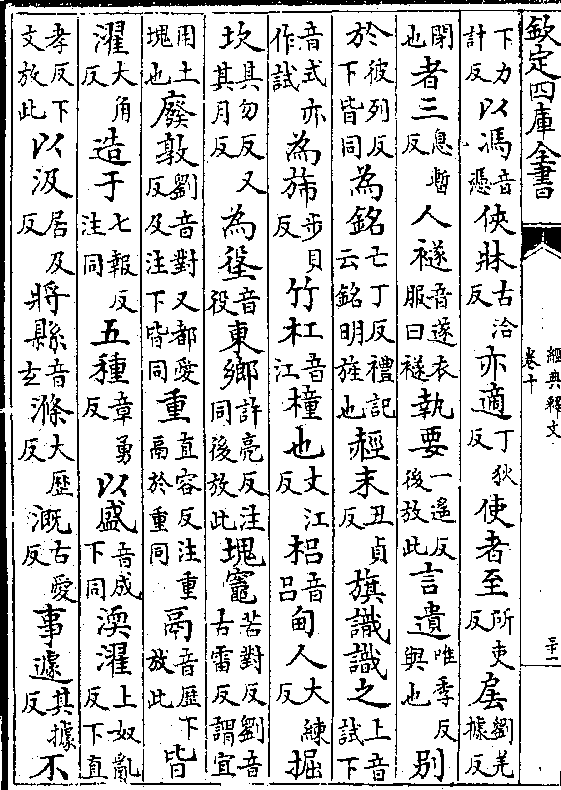 欽定四庫全書 經典釋文 卷十 三十一
下力計反以馮音憑俠牀古洽反亦適丁狄反使者至所吏反㧁劉羌據反
閉也者三息暫反人襚音遂衣服曰襚執要一遙反後放此言遺唯季反與也別
於彼列反下皆同為銘亡丁反禮記云銘明旌也赬末丑貞反旗識識之上音試下
音式亦作試為旆步貝反竹杠音江橦也丈江反梠音吕甸人大練反掘
坎其勿反又其月反為垼音役東鄉許亮反注同後放此塊竈苦對反劉音古雷反謂宜
用土塊也廢敦劉音對又都愛反及注下皆同重直容反注重鬲於重同鬲音歷下放此皆
濯大角反造于七報反注同五種章勇反以盛音成下同渜濯上奴亂反下直
孝反下文放此以汲居及反將縣音玄滌大歷反溉古愛反事遽其據反不